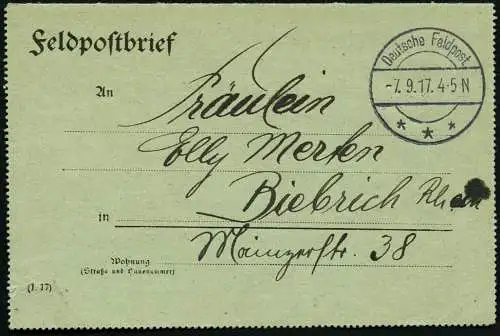 Feldpostbrief
Deutsche Feldpost.
-7.9.17. 4-5 N
* * *
An
Fräulein
Elly Merten
Biebrich Rhein
in
Mainzerstr. 38
Wohnung
(Straße und Hausnummer)
(I. 17)